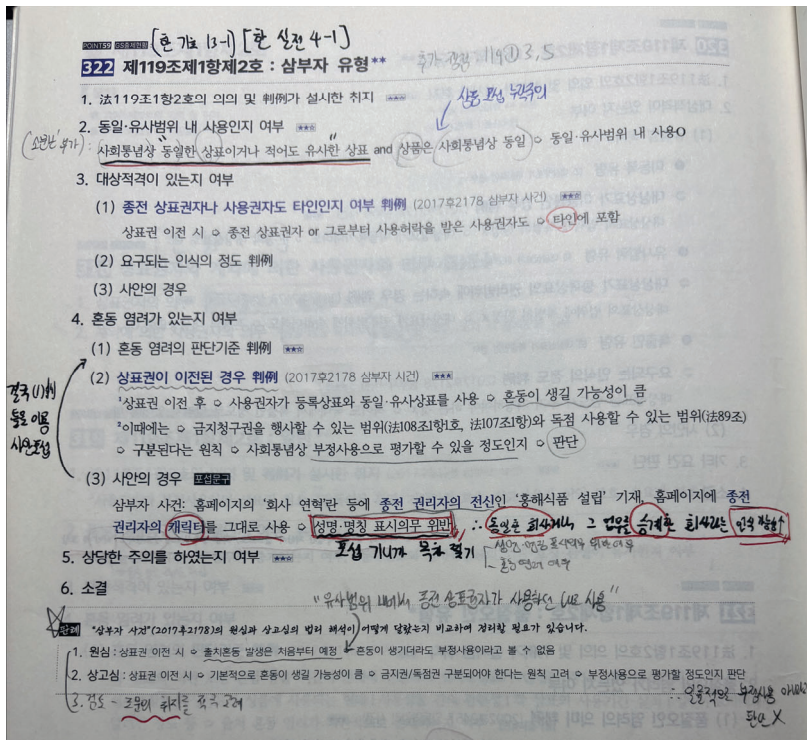 POINT59 GS출제현황 [한 기초 13-1] [한 실전 4-1]
322 제119조제1항제2호 : 삼부자 유형**
119①3, 5
1. 法119조1항2호의 의의 및 判例가 설시한 취지 ★☆☆
2. 동일·유사범위 내 사용인지 여부 ★★☆
사회통념상 동일한 상표이거나 적어도 유사한 상표 and 상품은 사회통념상 동일 ➪ 동일·유사범위 내 사용O
3. 대상적격이 있는지 여부
(1) 종전 상표권자나 사용권자도 타인인지 여부 判例 (2017후2178 삼부자 사건) ★★☆
상표권 이전 시 ➪ 종전 상표권자 or 그로부터 사용허락을 받은 사용권자도 ➪ 타인에 포함
(2) 요구되는 인식의 정도 判例
(3) 사안의 경우
4. 혼동 염려가 있는지 여부
(1) 혼동 염려의 판단기준 判例 ★★☆
(2) 상표권이 이전된 경우 判例 (2017후2178 삼부자 사건) ★★★
¹상표권 이전 후 ➪ 사용권자가 등록상표와 동일·유사상표를 사용 ➪ 혼동이 생길 가능성이 큼
²이때에는 ➪ 금지청구권을 행사할 수 있는 범위(法108조1항1호, 法107조1항)와 독점 사용할 수 있는 범위(法89조)
➪ 구분된다는 원칙 ➪ 사회통념상 부정사용으로 평가할 수 있을 정도인지 ➪ 판단
결국 (1)判
등을 이용
사안포섭
(3) 사안의 경우 포섭문구
삼부자 사건: 홈페이지의 '회사 연혁'란 등에 종전 권리자의 전신인 '홍해식품 설립' 기재, 홈페이지에 종전
권리자의 캐릭터를 그대로 사용 ➪ 성명·명칭 표시의무 위반 ∴ 동일한 회사거나 그 업무를 승계한 회사라는 인식 가능↑
포섭 기니까 목차 떨기
성명·명칭 표시의무 위반여부
혼동염려 여부
5. 상당한 주의를 하였는지 여부 ★★☆
6. 소결
"유사범위 내에서 종전 상표권자가 사용하던 대로 사용"
판례 "삼부자 사건"(2017후2178)의 원심과 상고심의 법리 해석이 어떻게 달랐는지 비교하여 정리할 필요가 있습니다.
1. 원심: 상표권 이전 시 ➪ 출처혼동 발생은 처음부터 예정 ➪ 혼동이 생기더라도 부정사용이라고 볼 수 없음
2. 상고심: 상표권 이전 시 ➪ 기본적으로 혼동이 생길 가능성이 큼 ➪ 금지권/독점권 구분되어야 한다는 원칙 고려 ➪ 부정사용으로 평가할 정도인지 판단
3. 검토 - 조문의 취지를 적극 고려
∴ 일률적으로 부정사용 아니라고
판단 X